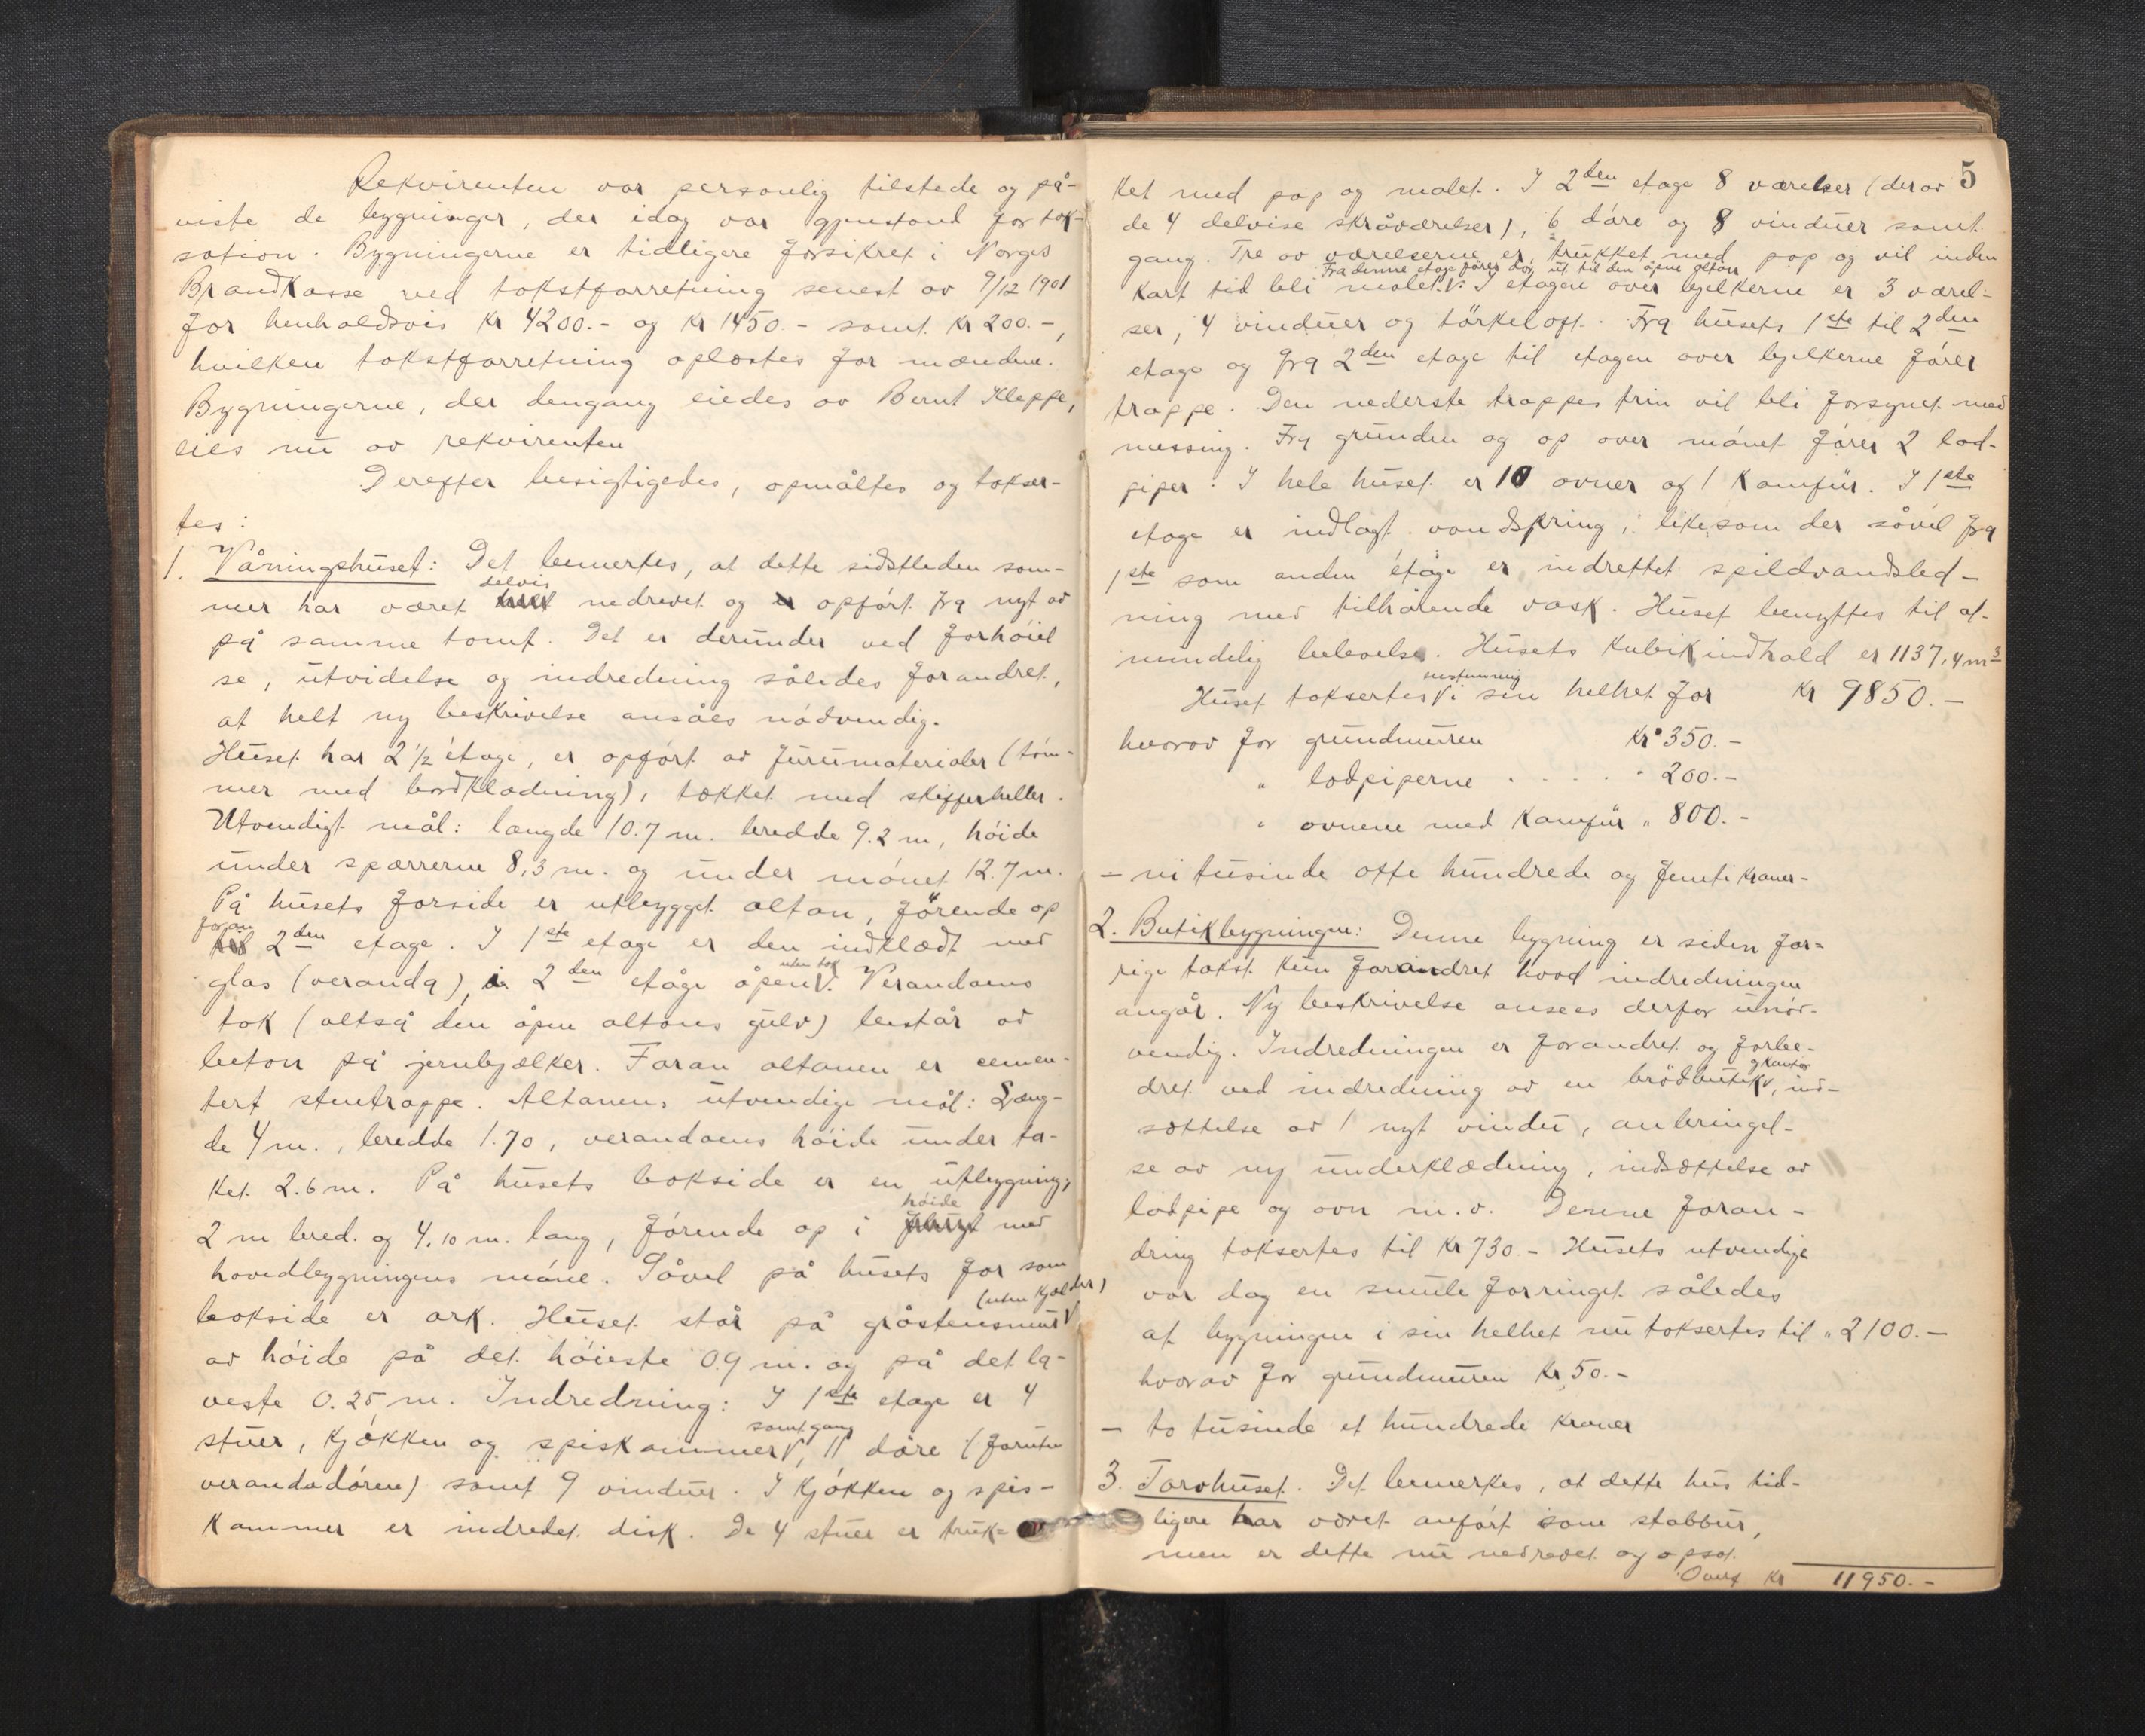 Rekvirenten var personlig tilstede og på-
viste de bygninger, der idag var gjenstand for tak-
sation. Bygningerne er tidligere forsikret i Norges
Brandkasse ved takstforretning senest av 9/12 1901
for henholdsvis kr 4200.- og kr 1450.- samt kr 200.-,
hvilken takstforretning oplæstes for mændene.
Bygningerne, der dengang eiedes av Bernt Kleppe,
eies nu av rekvirenten
Derefter besigtigedes, opmåltes og takser-
tes:
1. Våningshuset: Det bemerkes, at dette sidstleden som-
delvis
mer har været nedrevet og opført fra nyt av
på samme tomt. Det er derunder ved forhøiel
se, utvidelse og indredning således forandret,
at helt ny beskrivelse ansåes nødvendig.
Huset har 2 1/2 etage, er opført av furumaterialer (tøm-
mer med bordklædning), tækket med skifferheller.
Utvendigt mål: længde 10.7 m. bredde 9.2 m, høide
under sparrerne 8,3 m. og under mønet 12.7 m.
På husets forside er utbygget altan, førende op
foran
2den etage. I 1ste etage er den indklædt med
uten tak
glas (veranda), i 2den etage åpen V. Verandaens
tak (altså den åpne altans gulv) består av
beton på jernbjælker. Foran altanen er cemen-
tert stentrappe. Altanens utvendige mål: Læng-
de 4 m., bredde 1.70, verandaens høide under ta-
ket 2.6 m. På husets bakside er en utbygning,
høide
2 m bred. og 4.10 m. lang, førende op i med
hovedbygningens møne. Såvel på husets for som
(uten kjælder)
bakside er ark. Huset står på gråstensmur V
av høide på det høieste 0.9 m. og på det la-
veste 0.25 m. Indredning: I 1ste etage er 4
samt gang
stuer, kjøkken og spiskammer V, 11 døre (foruten
verandadøren) samt 9 vinduer. I kjøkken og spis-
kammer er indredet disk. De 4 stuer er truk-
5
ket med pap og malet. I 2den etage 8 værelser (derav
de 4 delvise skråværelser), 6 døre og 8 vinduer samt
gang. Tre av værelserne er trukket med pap og vil inden
Fra denne etage fører dør ut til den åpne altan
kort tid bli malet. V. I etagen over bjelkerne er 3 værel-
ser, 4 vinduer og tørkeloft. Fra husets 1ste til 2den
etage og fra 2den etage til etagen over bjelkerne fører
trappe. Den nederste trappes trin vil bli forsynet med
messing. Fra grunden og op over mønet fører 2 lod-
piper. I hele huset er 10 ovner og 1 Komfür. I 1ste
etage er indlagt vandspring, likesom der såvel fra
1ste som anden etage er indrettet spildvandsled-
ning med tilhørende vask. Huset benyttes til al-
mindelig beboelse. Husets kubikindhold er 1137,4 m3
nustemning
Huset taksertes V i sin helhet for kr 9850.-
hvorav for grundmuren kr 350.-
" lodpiperne . . . . " 200.-
" ovnene med Komfür " 800.-
- ni tusinde otte hundrede og femti kroner-
2. Butikbygningen: Denne bygning er siden for-
rige takst kun forandret hvad indredningen
angår. Ny beskrivelse ansees derfor unød-
vendig. Indredningen er forandret og forbe-
og kontor
dret ved indredning av en brødbutik V, ind-
sættelse av 1 nyt vindu, anbringel-
se av ny underklædning, indsættelse av
lodpipe og ovn m.v. Denne foran-
dring taksertes til kr 730.- Husets utvendige
var dog en smule forringet således
at bygningen i sin helhet nu taksertes til " 2100.-
hvorav for grundmuren kr 50.-
- to tusinde et hundrede kroner
3. Torvhuset. Det bemerkes, at dette hus tid-
ligere har været anført som stabbur,
men er dette nu nedrevet og opsat.
Overf kr 11950.-